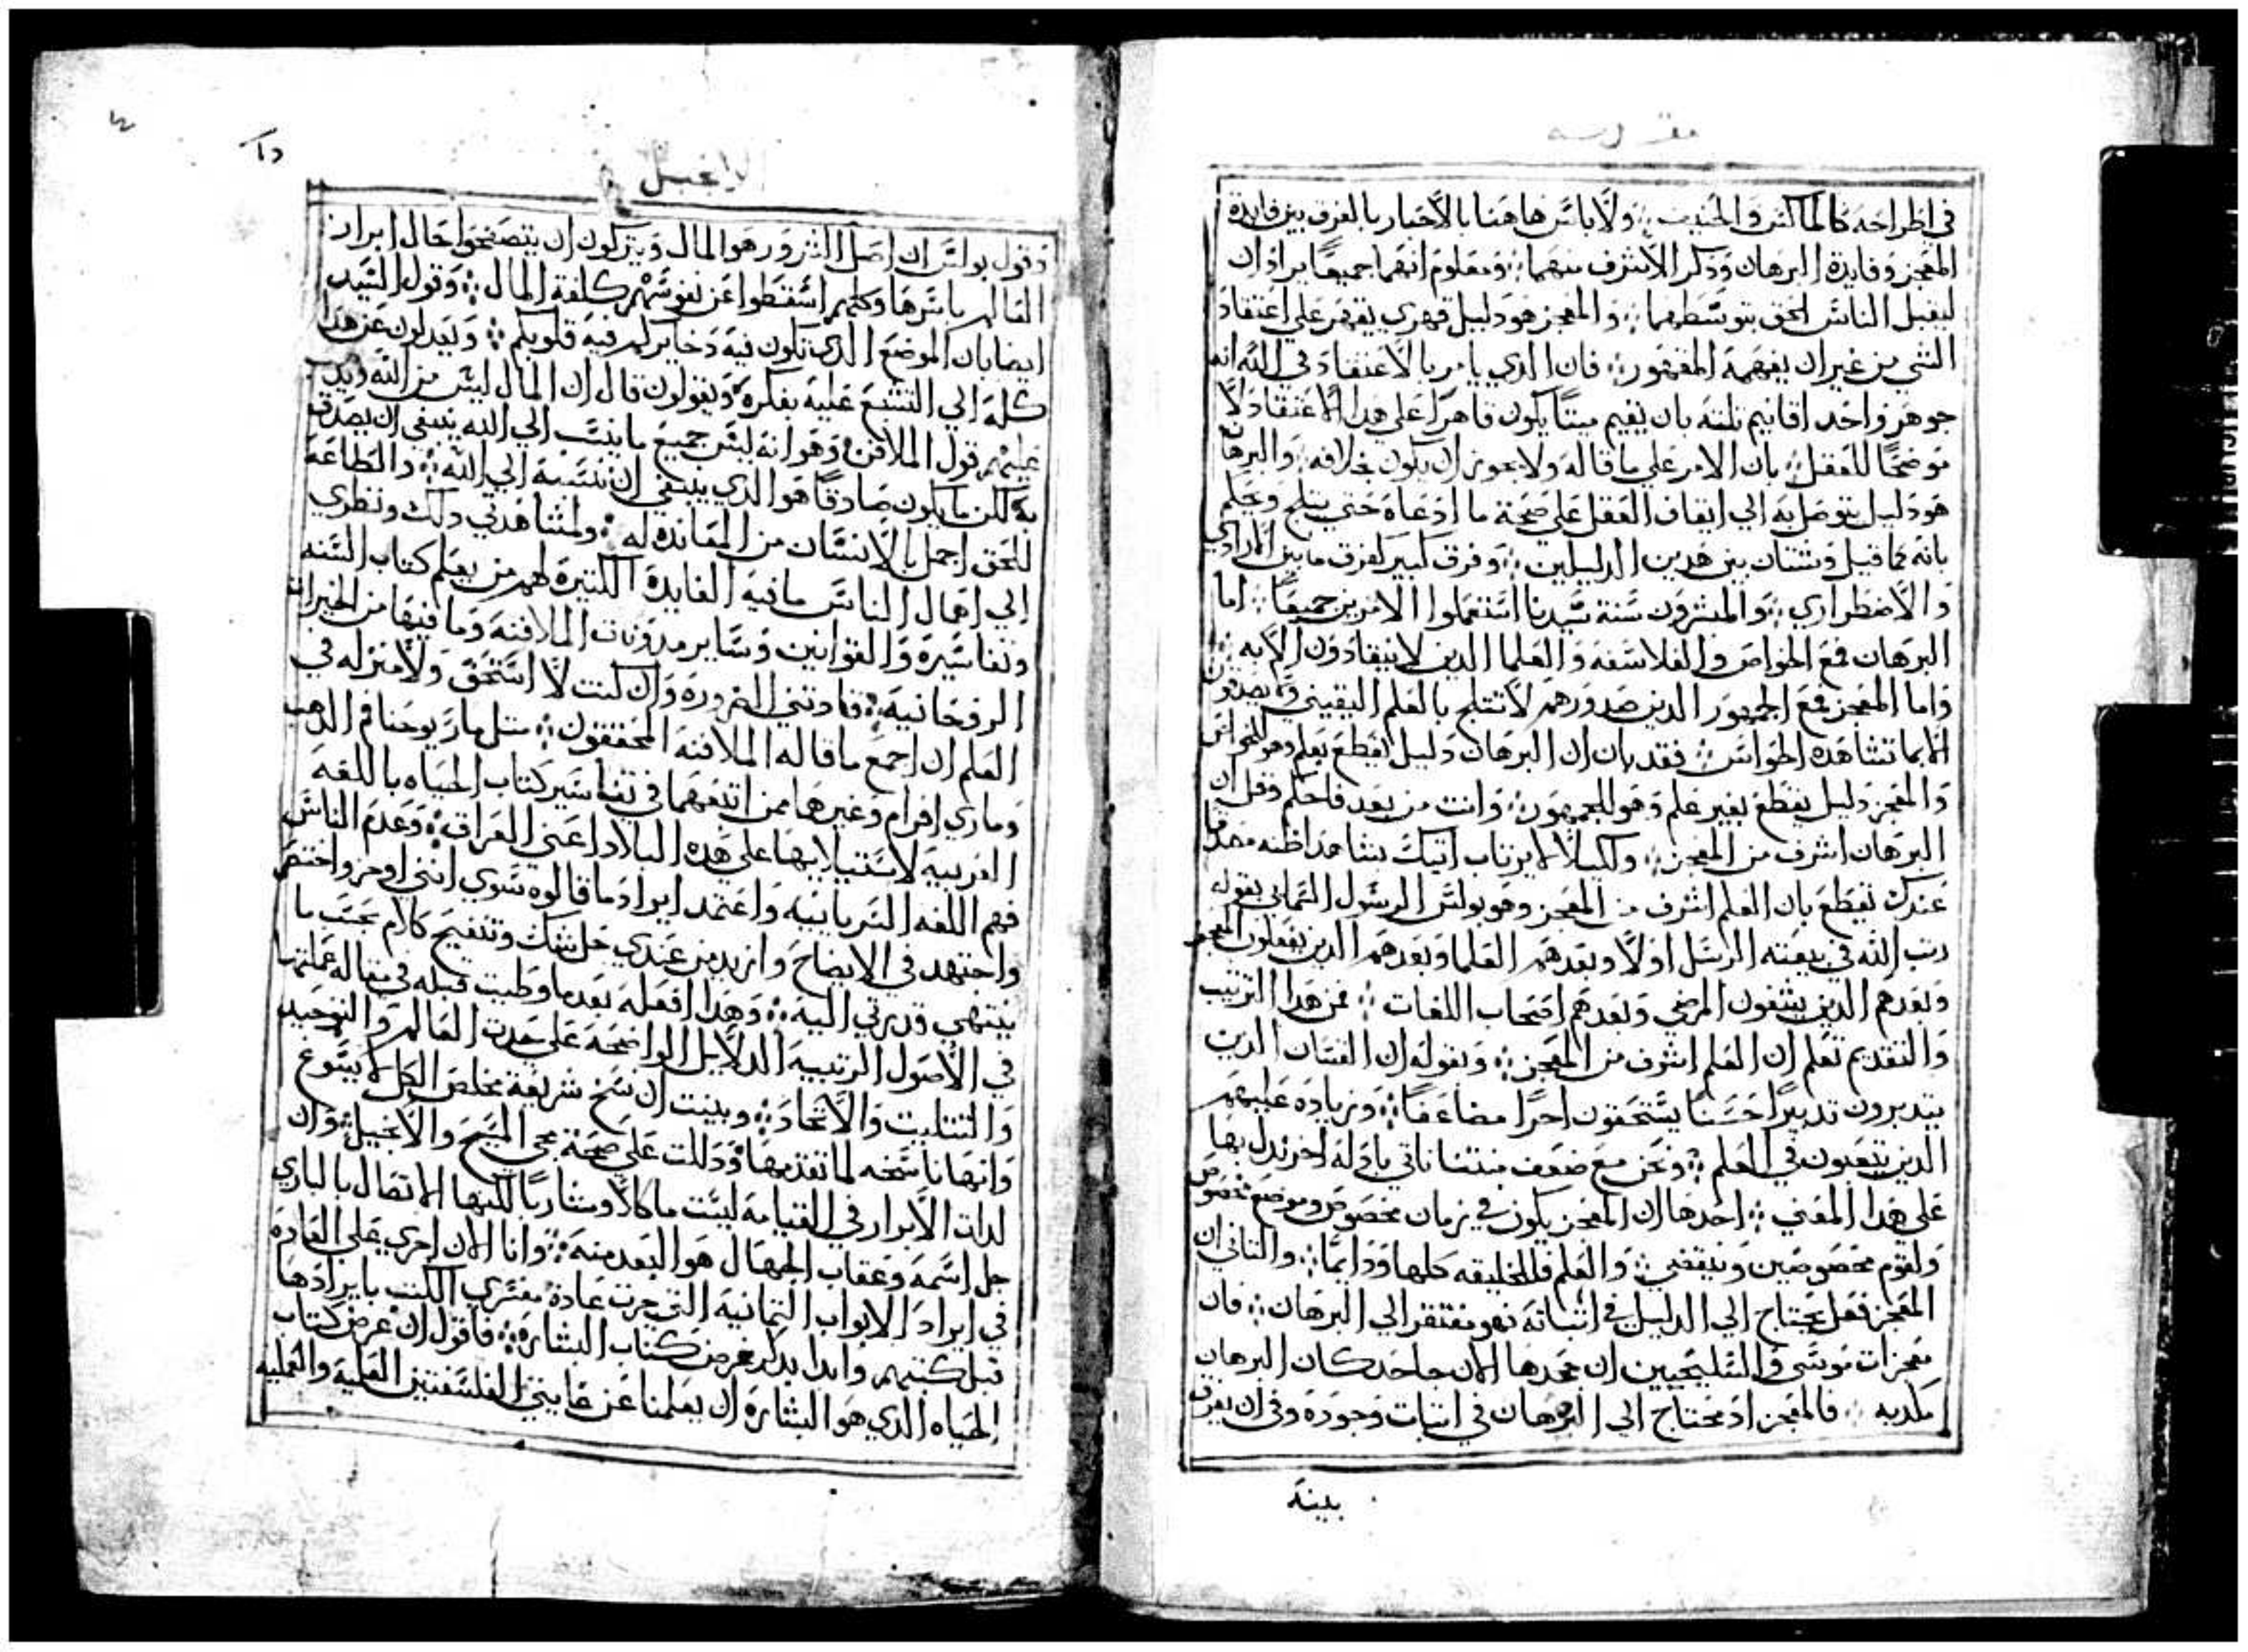 مقدمة
في اطراحه كالماكس والحنيف ؞ ولا باس هاهنا بالاخبار بالفرق بين فايدة
المعجز وفايدة البرهان وذكر الاشرف منهما ؞ ومعلوم انهما جميعًا يرادان
ليقبل الناس الحق بتوسطهما ؞ والمعجز هو دليل قهري يقهر على اعتقاد
الشي من غير ان يفهمه المقهور ؞ فان الذي يامر بالاعتقاد في الله انه
جوهر واحد اقانيم ثلثه بان يقيم ميتًا يكون قاهرًا على هذا الاعتقاد لا
موضحًا للعقل ؞ بان الامر على ما قاله ولا يجوز ان يكون بخلافه ؞ والبرهان
هو دليل يتوصل به الي ايقاف العقل على صحة ما ادعاه حتي يثلج وعلم
بانه كما قيل وشتان بين هدين الدليلين ؞ وفرق كبير كفرق ما بين المرادي
والاضطراري ؞ والمبشرون سنة سيدنا استعملوا الامرين جميعًا ؞ اما
البرهان فمع الخواص والفلاسفه والعلما الدين لا ينقادون الا به ؞
واما المعجز فمع الجمهور الدين صدورهم لا تثلج بالعلم اليقيني ولا يصدقون
الا بما تشاهده الحواس ؞ فقد بان ان البرهان دليل يقطع بعلم وهو للخواص
والمعجز دليل يقطع بغير علم وهو للجمهور ؞ وانت من بعد فاحكم وقل ان
البرهان اشرف من المعجز ؞ ولكيلا ترتاب اتيك بشاهد اظنه مصدقًا
عندك يقطع بان العلم اشرف من المعجز وهو بولس الرسول السماي بقوله
رتب الله في بيعته الرسل اولًا وبعدهم العلما وبعدهم الدين يفعلون المعجز
وبعدهم الدين يشفون المرضي وبعدهم اصحاب اللغات ؞ فمن هدا الترتيب
والتقديم تعلم ان العلم اشرف من المعجز ؞ وبقوله ان القسان الدين
يتدبرون تدبيرًا حسنًا يستحقون اجرًا مضاعفًا ؞ وزياده عليهم
الدين يتعبون في العلم ؞ ونحن مع ضعف منتنا ناتي بادله اخر ندل بها
على هدا المعني ؞ احدها ان المعجز يكون في زمان مخصوص وموضع مخصوص
ولقوم مخصوصين وينقضي ؞ والعلم فللخليقه كلها ودايمًا ؞ والتاني ان
المعجز فعل يحتاج الي الدليل في اثباته فهو مفتقر الي البرهان ؞ فان
معجزات موسي والسليحيين ان جحدها الان جاحد كان البرهان
مكدبه ؞ فالمعجز اد محتاج الي البرهان في اتبات وجوده وفي ان يعرف
بينه
الانجيل
وقول بولس ان اصل الشرور هو المال ويتركون ان يتصفحوا حال ابرار
العالم باسرها وكلهم اسقطوا عن نفوسهم كلفة المال ؞ وقول السيد
ايضا بان الموضع الدي تكون فيه دخايركم فيه قلوبكم ؞ ويعدلون عن هدا
كله الي التشبع عليه بفكره ويقولون قال ان المال ليس من الله
عليهم قول الملافن وهو انه ليس جميع ما ينسب الي الله ينبغي ان يصدق
به لكن ما يكون صادقًا هو الدي ينبغي ان ننسبه الي الله ؞ والطاعة
للحق اجمل بالانسان من المعانده له ؞ ولمشاهدتي دلك ونظري
الي اهمال الناس ما فيه الفايدة الكتيرة لهم من يعلم كتاب السنه
وتفاسيره والقوانين وساير مدونات الملافنه وما فيها من الخيرات
الروحانيه ؞ قادتني الضروره وان كنت لا استحق ولا منزله في
العلم ان اجمع ما قاله الملافنه المحققون ؞ متل مار يوحنا فم الدهب
وماري افرام وغيرهما ممن اتبعهما في تفاسير كتاب الحياه باللغه
العربيه لاستيلايها على هده البلاد اعني العراق ؞ وعدم الناس
فهم اللغه السريانيه واعتمد ايراد ما قالوه سوي انني اوجز واختصر
واجتهد في الايضاح وازيد من عندي حل شك وتنقيح كلام بحسب ما
ينتهي قدرتي اليه ؞ وهدا افعله بعد ما وطيت قبله في مقاله عملتها
في الاصول الدينيه الدلايل الواضحه على حدت العالم والتوحيد
والتتليت والاتحاد ؞ وبينت ان نسخ شريعة مخلص الكل لا يسوغ
وانها ناسخه لما تقدمها ودللت على صحة مجي المسيح والانجيل ؞ وان
لدات الابرار في القيامه ليست ماكلًا ومشاربًا لكنها الاتصال بالباري
جل اسمه وعقاب الجهال هو البعد منه ؞ وانا الان اجري على العاده
في ايراد الابواب التمانيه التي جرت عادة مفسري الكتب بايرادها
قبل كتبهم وابدا بدكر غرض كتاب البشاره ؞ فاقول ان غرض كتاب
الحياه الدي هو البشاره ان يعلمنا عن غايتي الفلسفتين العلميه والعمليه